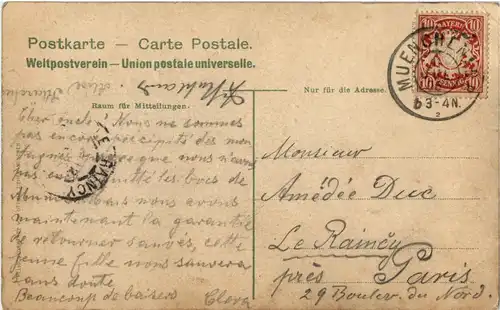 Postkarte — Carte Postale.
Weltpostverein — Union postale universelle.
Raum für Mitteilungen.
Nur für die Adresse.
BAYERN
10 10
10 PFENNIG 10
MUENCHEN
3-4N.
2
LE RAINCY
Cher oncle! Nous ne sommes
pas encore précipités des mon
tagnes que nous n'avons
pas quitté les bocs de
nous avons
maintenant la garantie
de retourner sauvés, cette
jeune fille nous sauvera
sans doute
Beaucoup de baisers Clara
Monsieur
Amédée Duc
Le Raincy
près Paris
29 Boulev. du Nord.